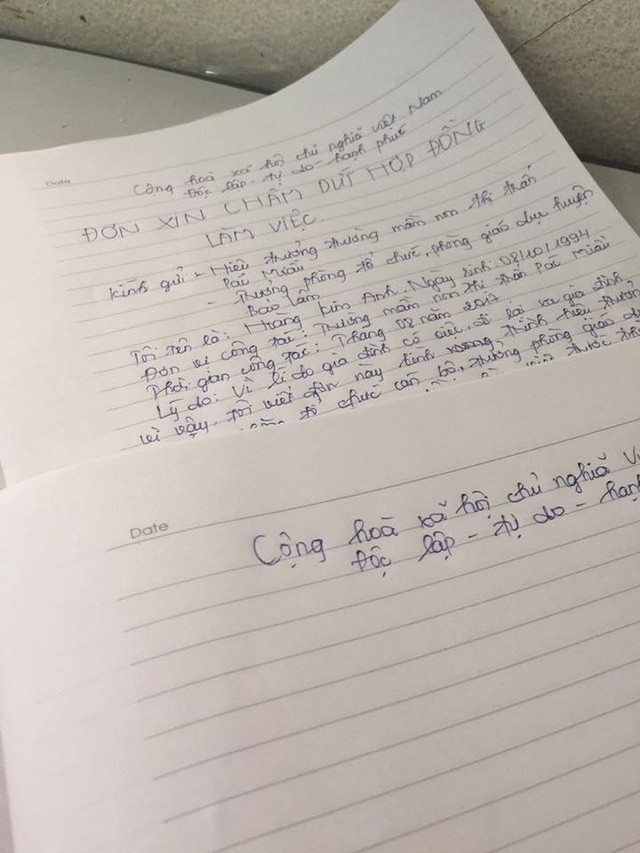 Date
Cộng hoà xã hội chủ nghĩa Việt Nam
Độc lập - tự do - hạnh phúc
ĐƠN XIN CHẤM DỨT HỢP ĐỒNG
LÀM VIỆC.
Kính gửi - Hiệu trưởng trường mầm non thị trấn
Pác Miầu
- Trưởng phòng tổ chức, phòng giáo dục huyện
Bảo Lâm
Tôi tên là: Hoàng Kim Anh. Ngày sinh: 08/10/1994
Đơn vị công tác: Trường mầm non thị trấn Pác Miầu
Thời gian công tác: Tháng 08 năm 2017
Lý do: Vì lí do gia đình có việc, đi lại xa gia đình,
vì vậy tôi viết đơn này kính mong trình hiệu trưởng
tổ chức cán bộ, trưởng phòng giáo
Date
Cộng hoà xã hội chủ nghĩa V
Độc lập - tự do - hạnh